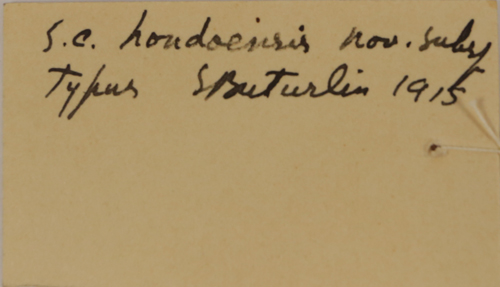 S.c. hondoensis nov. subsp
Typus SButurlin 1915